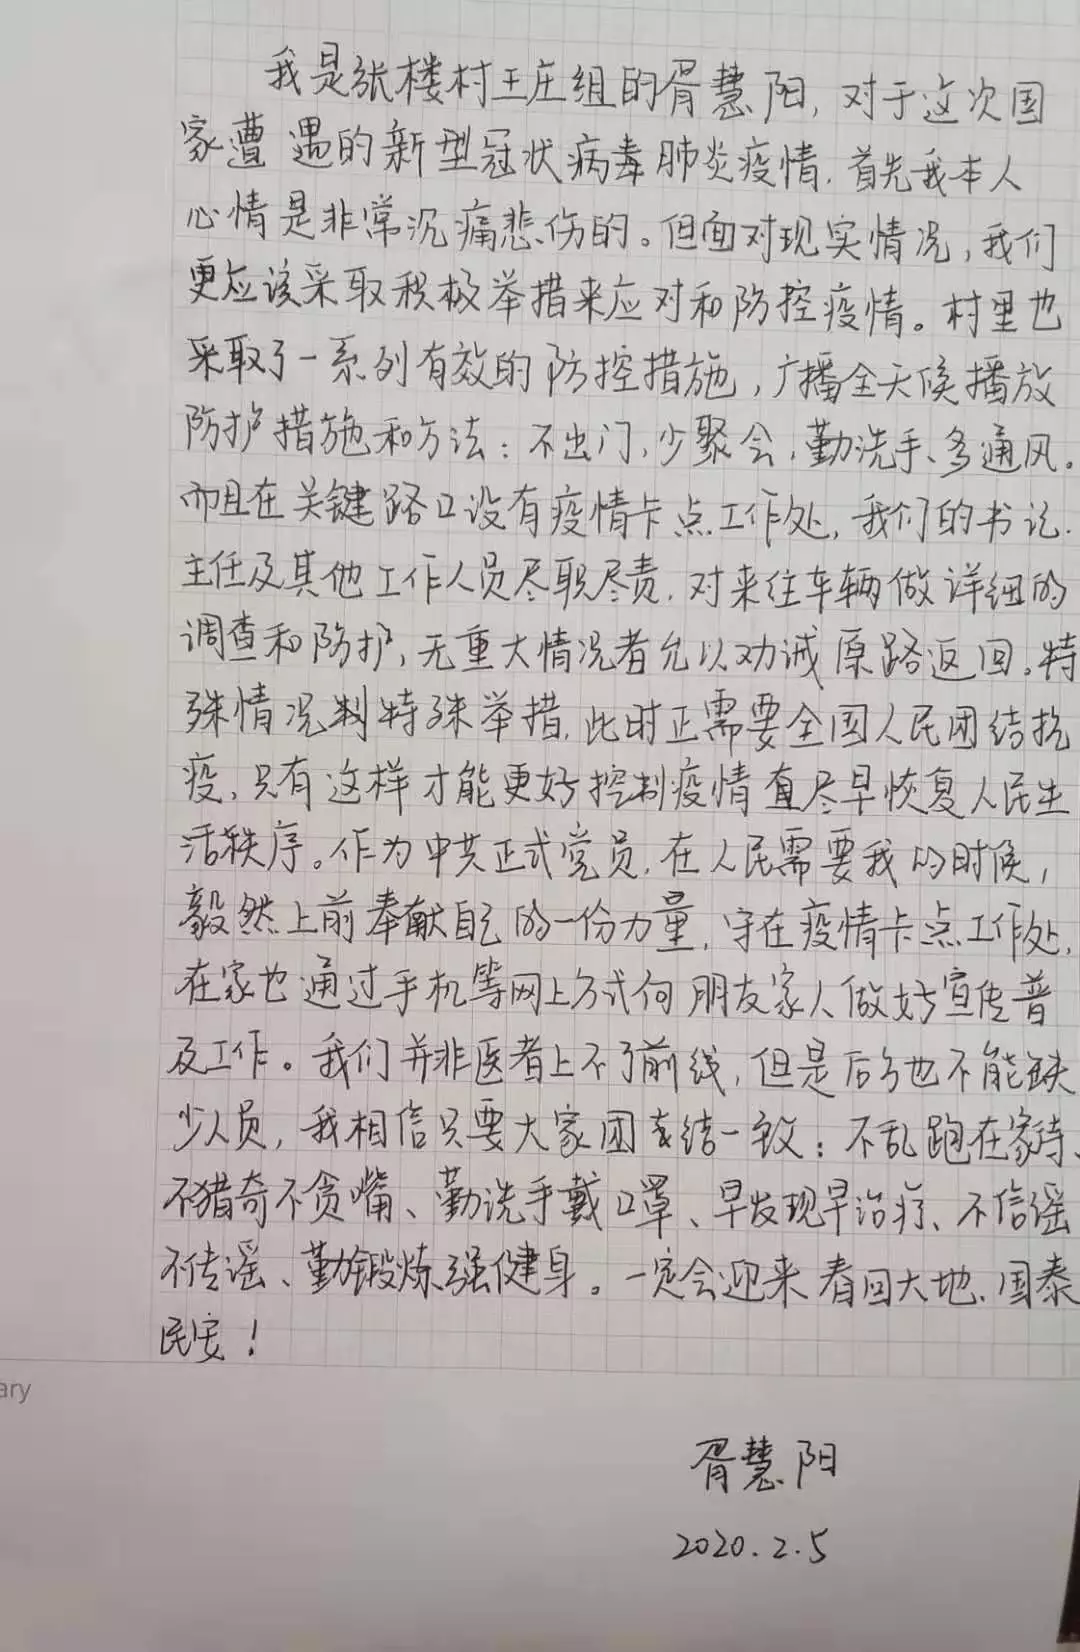 我是张楼村王庄组的胥慧阳，对于这次国
家遭遇的新型冠状病毒肺炎疫情，首先我本人
心情是非常沉痛悲伤的。但面对现实情况，我们
更应该采取积极举措来应对和防控疫情。村里也
采取了一系列有效的防控措施，广播全天候播放
防护措施和方法：不出门，少聚会，勤洗手、多通风。
而且在关键路口设有疫情卡点工作处，我们的书记.
主任及其他工作人员尽职尽责，对来往车辆做详细的
调查和防护，无重大情况者允以劝诫原路返回。特
殊情况判特殊举措，此时正需要全国人民团结抗
疫，只有这样才能更好控制疫情直尽早恢复人民生
活秩序。作为中共正式党员，在人民需要我的时候，
毅然上前奉献自己的一份力量，守在疫情卡点工作处，
在家也通过手机等网上方式向朋友家人做好宣传普
及工作。我们并非医者上不了前线，但是后方也不能缺
少人员，我相信只要大家团结一致：不乱跑在家待、
不猎奇不贪嘴、勤洗手戴口罩、早发现早治疗、不信谣
不传谣、勤锻炼强健身。一定会迎来春回大地、国泰
民安！
ary
胥慧阳
2020.2.5